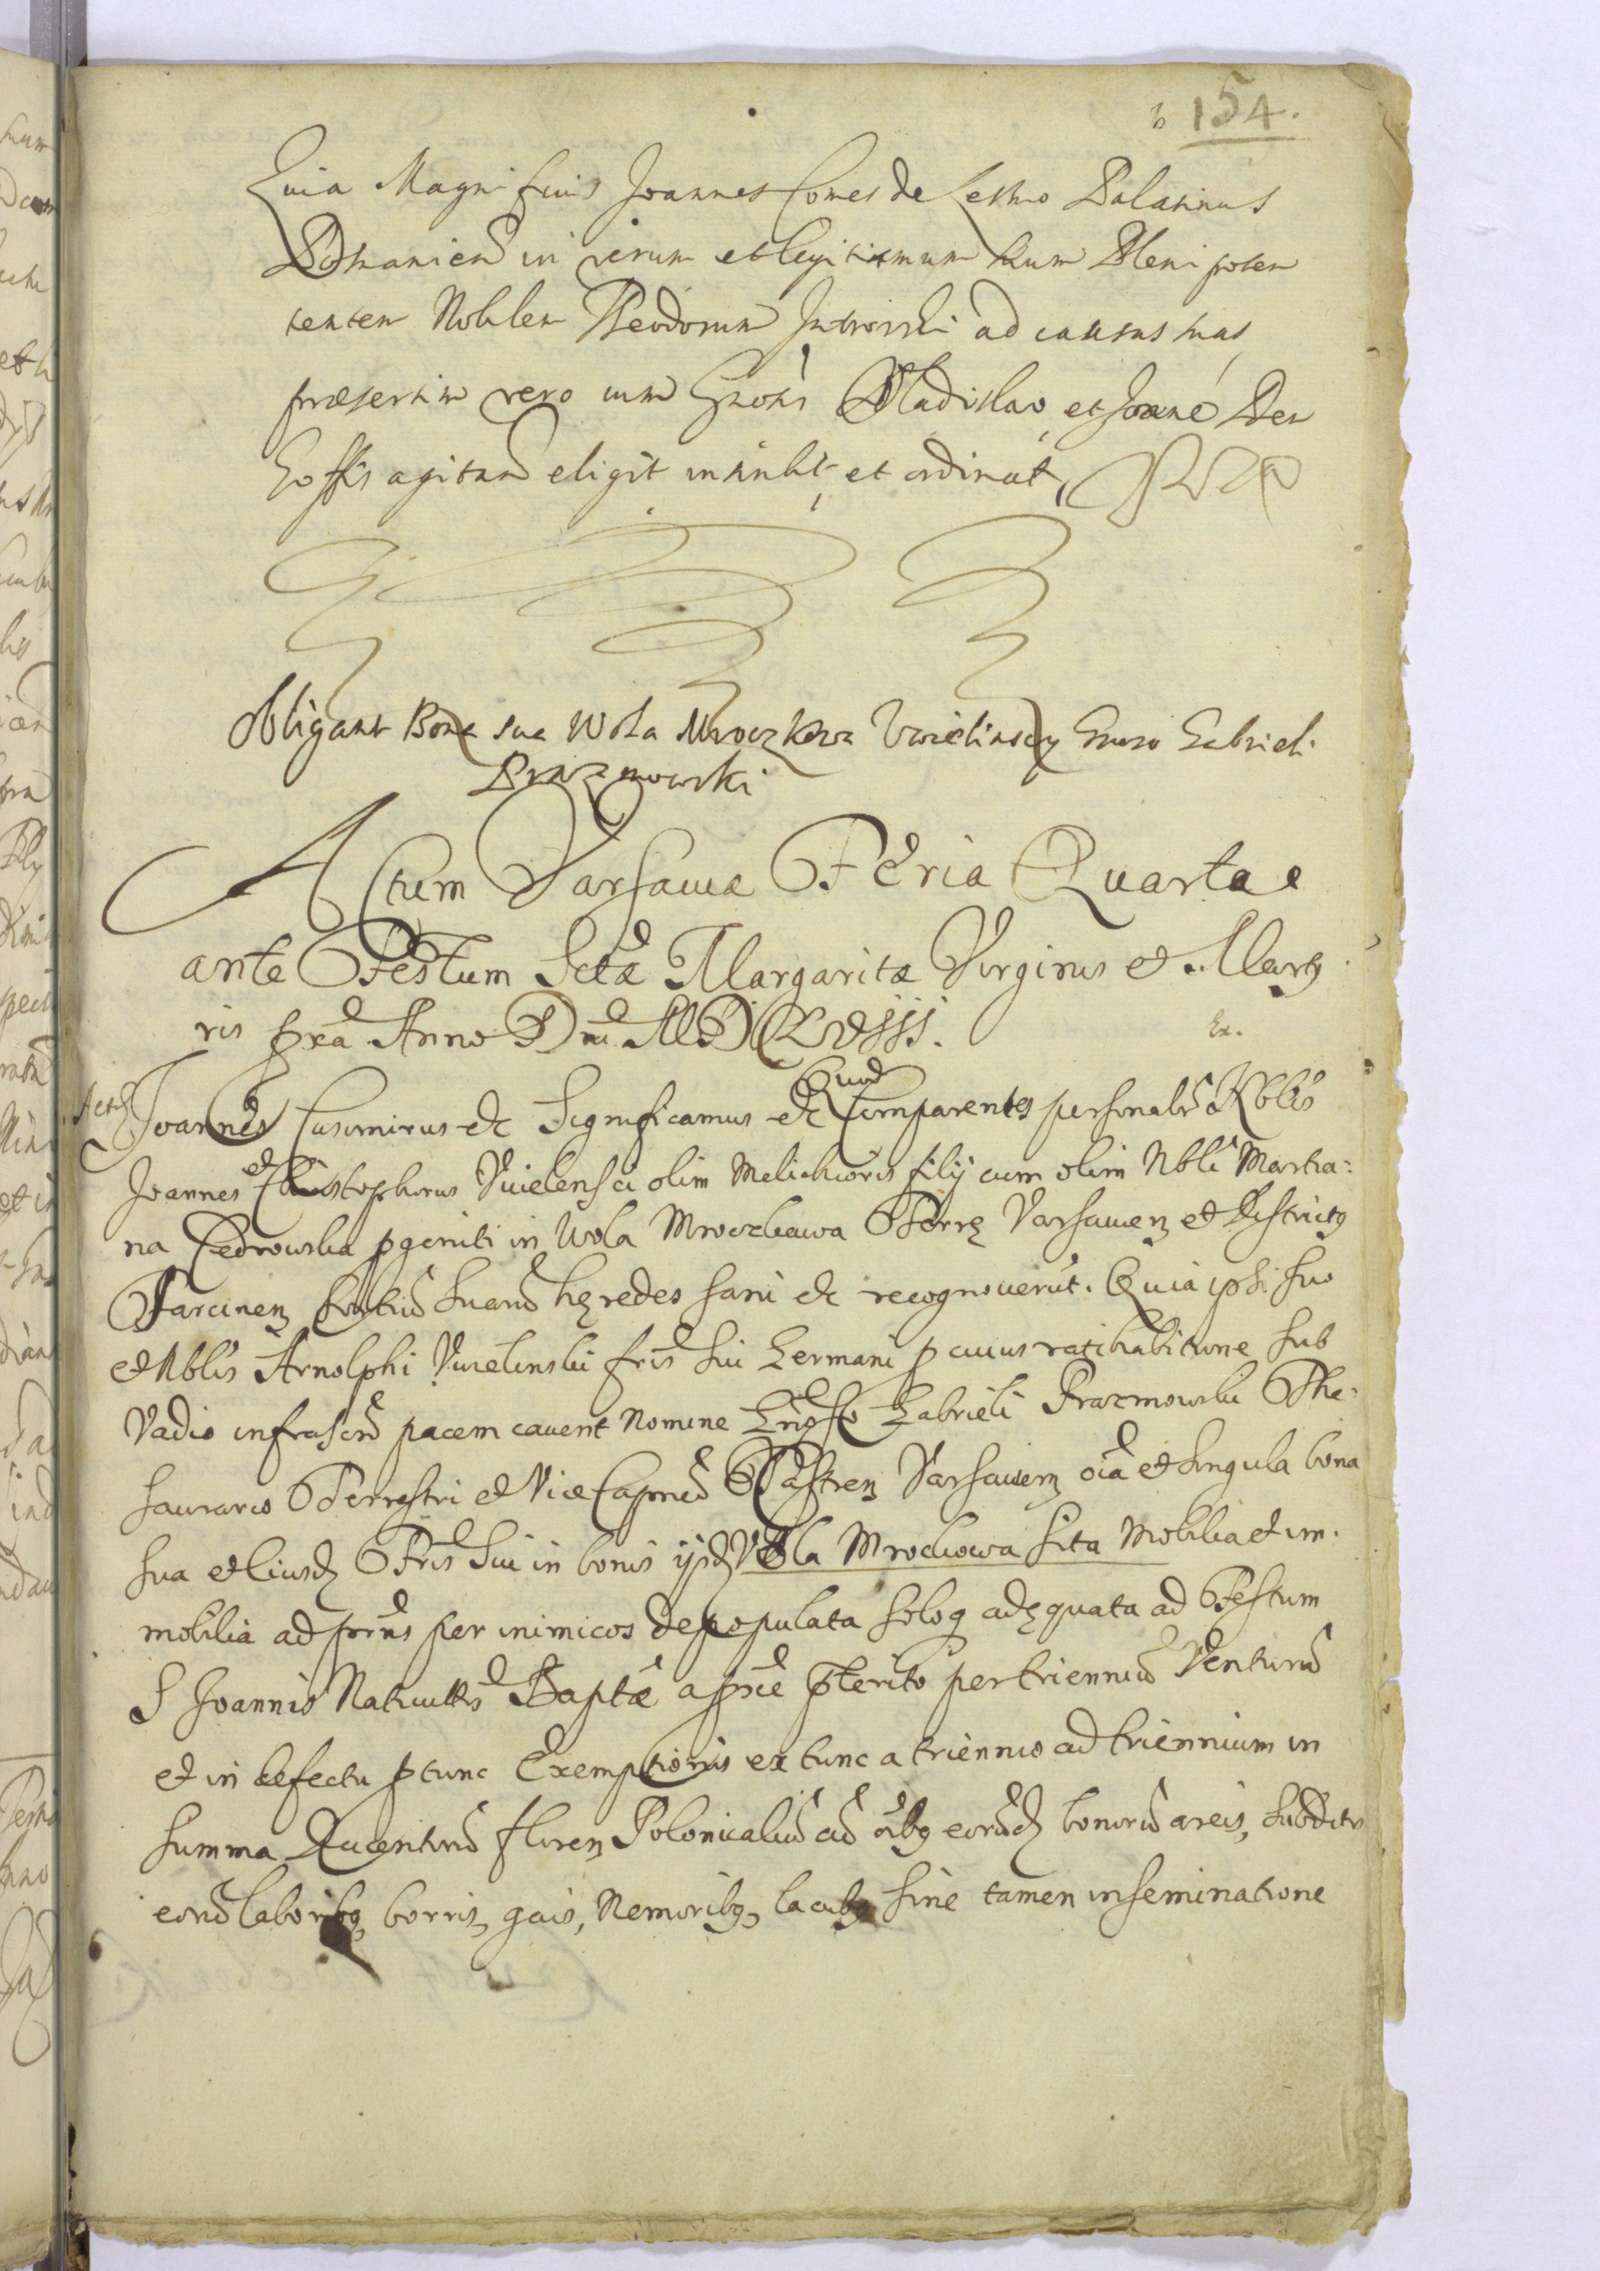 154.
Quia Magnificus Joannes Comes de Leszno Palatinus
Posnanien in verum et legitimum suum Plenipoten
tentem Noblem Theodorum ad causas suas
præsertim vero cum Gnosis Vladislao et Joane Den
hoffis agitan eligit instituit et ordinat,
Obligant Bona sua Wola Mroczkowa Uwielinscy Gnoso Gabrieli
Prazmowski
Actum Varsaviæ Feria Quarta
ante Festum Sctæ Margaritæ Virginis et Marty
ris pxa Anno Dni MDCLVIII.
Ex.
Joannes Casimirus etc Significamus etc Quod Comparentes personalr Nobles
Joannes et Christophorus Uvielensci olim Melichioris filij cum olim Nbli Martia:
na Cedrowska pgeniti in Wola Mroczkowa Terrę Varsavien et Districtus
Tarcinen sortiu suaru hęredes sani etc recognoverut. Quia ipsi suo
et Nblis Arnolphi Uvielinski fris sui Germani p cuius ratihabitione sub
Vadio infrascrō pacem cavent Nomine Gnoso Gabrieli Prazmowski The:
saurario Terrestri et Vice Capneo Castren Varsavien oia et singula bona
sua et eiusd Fris sui in bonis ijsd Wola Mrochowa sita Mobilia et im:
mobilia ad prns per inimicos depopulata soloq adęquata ad Festum
S Joannis Nativittis Baptæ a prie pterito per triennium Venturū
et in defectu ptunc Exemptionis ex tunc a triennio ad triennium in
summa Ducentorū floren Polonicaliū cū oibq eorūd bonorū areis, subditis
eorū laboribq, borris, gais, Nemoribq, lacubq sine tamen inseminatione